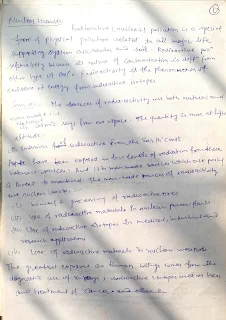 Nuclear Hazards
Radioactive (nuclear) pollution is a special
form of physical pollution related to all major life
supporting systems air, water and soil. Radioactive
because its nature of contamination is different from
other type of Radioactivity is the phenomenon of
emission of energy from radioactive isotopes
The sources of radioactivity are both natural and
rays from space. The quantity is more at higher
altitude.
radioactive from the earth's crust
People have been exposed to low levels of radiation from these
natural sources. But it is man made sources which are
a threat to mankind. The man made sources of radioactivity
are nuclear waste
processing of radioactive ores
Use of radioactive materials in nuclear power plants
Use of radioactive isotopes for medical, industrial and
research applications
Use of radioactive materials in nuclear weapons
The greatest exposure to human beings comes from the
diagnostic use of x-rays, radioactive isotopes used as
and treatment of cancer